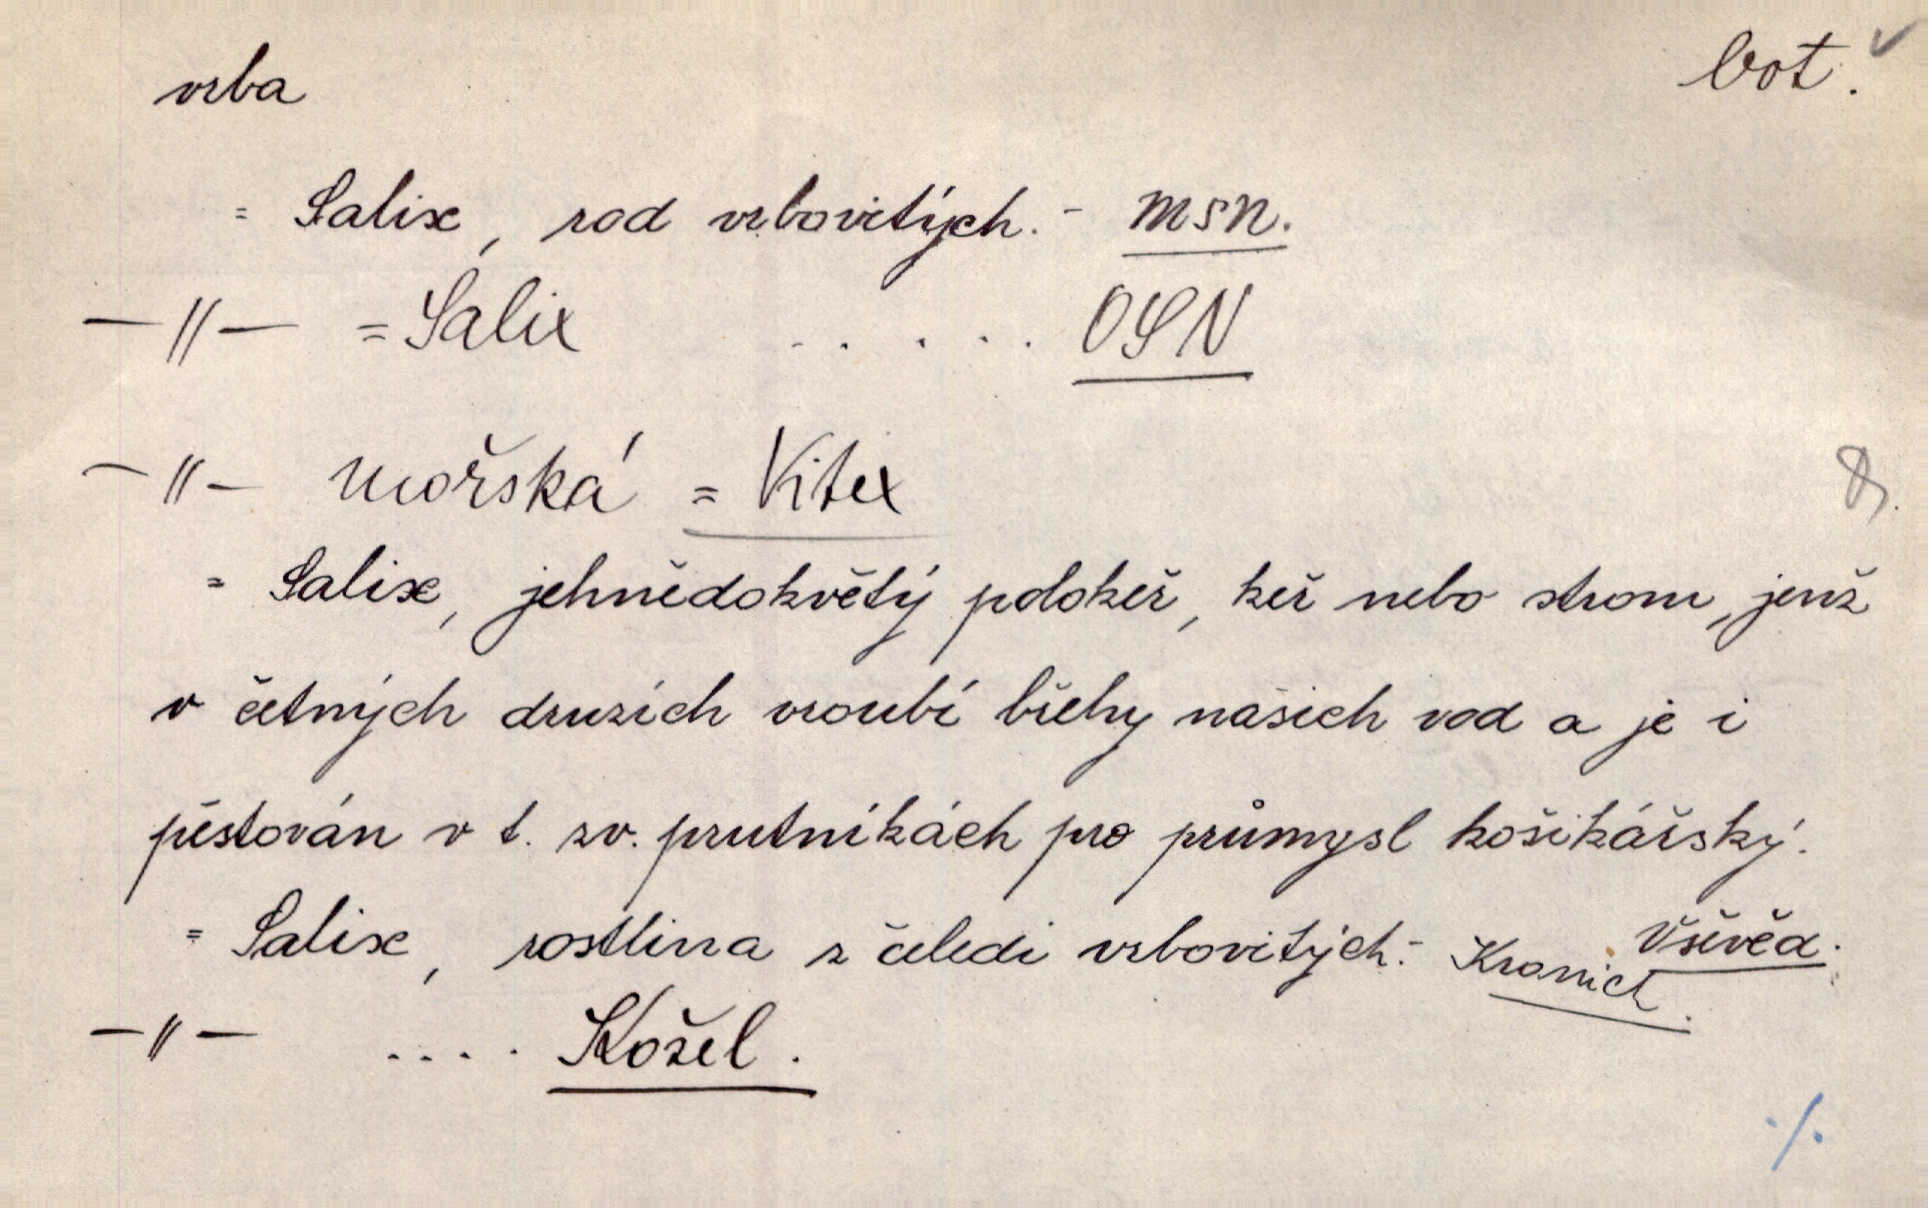 vrba bot.
= Salix, rod vrbovitých. - MSN.
—〃— = Salix ..... OSN
—〃— mořská = Vitex
= Salix, jehnědokvětý polokeř, keř nebo strom, jenž
v četných druzích vroubí břehy našich vod a je i
pěstován v t. zv. prutníkách pro průmysl košíkářský.
Vševěd.
= Salix, rostlina z čeledi vrbovitých. - Kranich.
—〃— .... Kožel.
./.